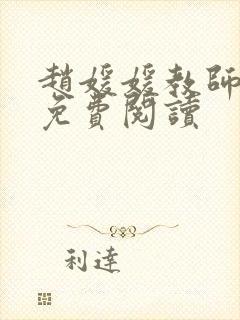 趙媛媛教師
免費閱讀
利達